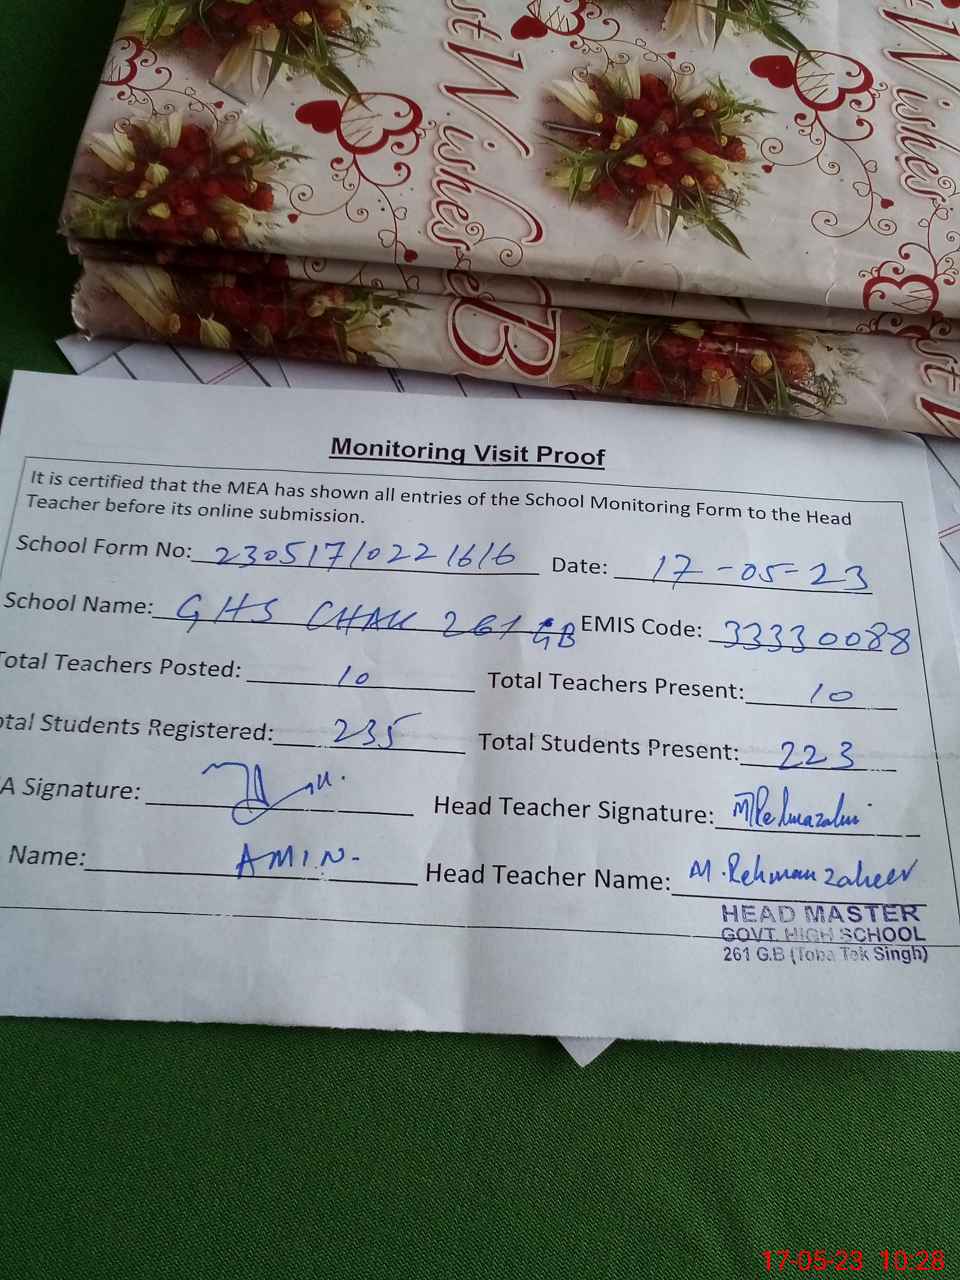 st Wishes
t Wishes
Best W
Monitoring Visit Proof
It is certified that the MEA has shown all entries of the School Monitoring Form to the Head
Teacher before its online submission.
School Form No: 230517/0221616 Date: 17-05-23
School Name: GHS CHAK 261 GB EMIS Code: 33330088
Total Teachers Posted: 10 Total Teachers Present: 10
otal Students Registered: 235 Total Students Present: 223
A Signature: Head Teacher Signature:
Name: AMIN. Head Teacher Name: M. Rehman zaheer
HEAD MASTER
GOVT. HIGH SCHOOL
261 G.B (Toba Tek Singh)
17-05-23 10:28